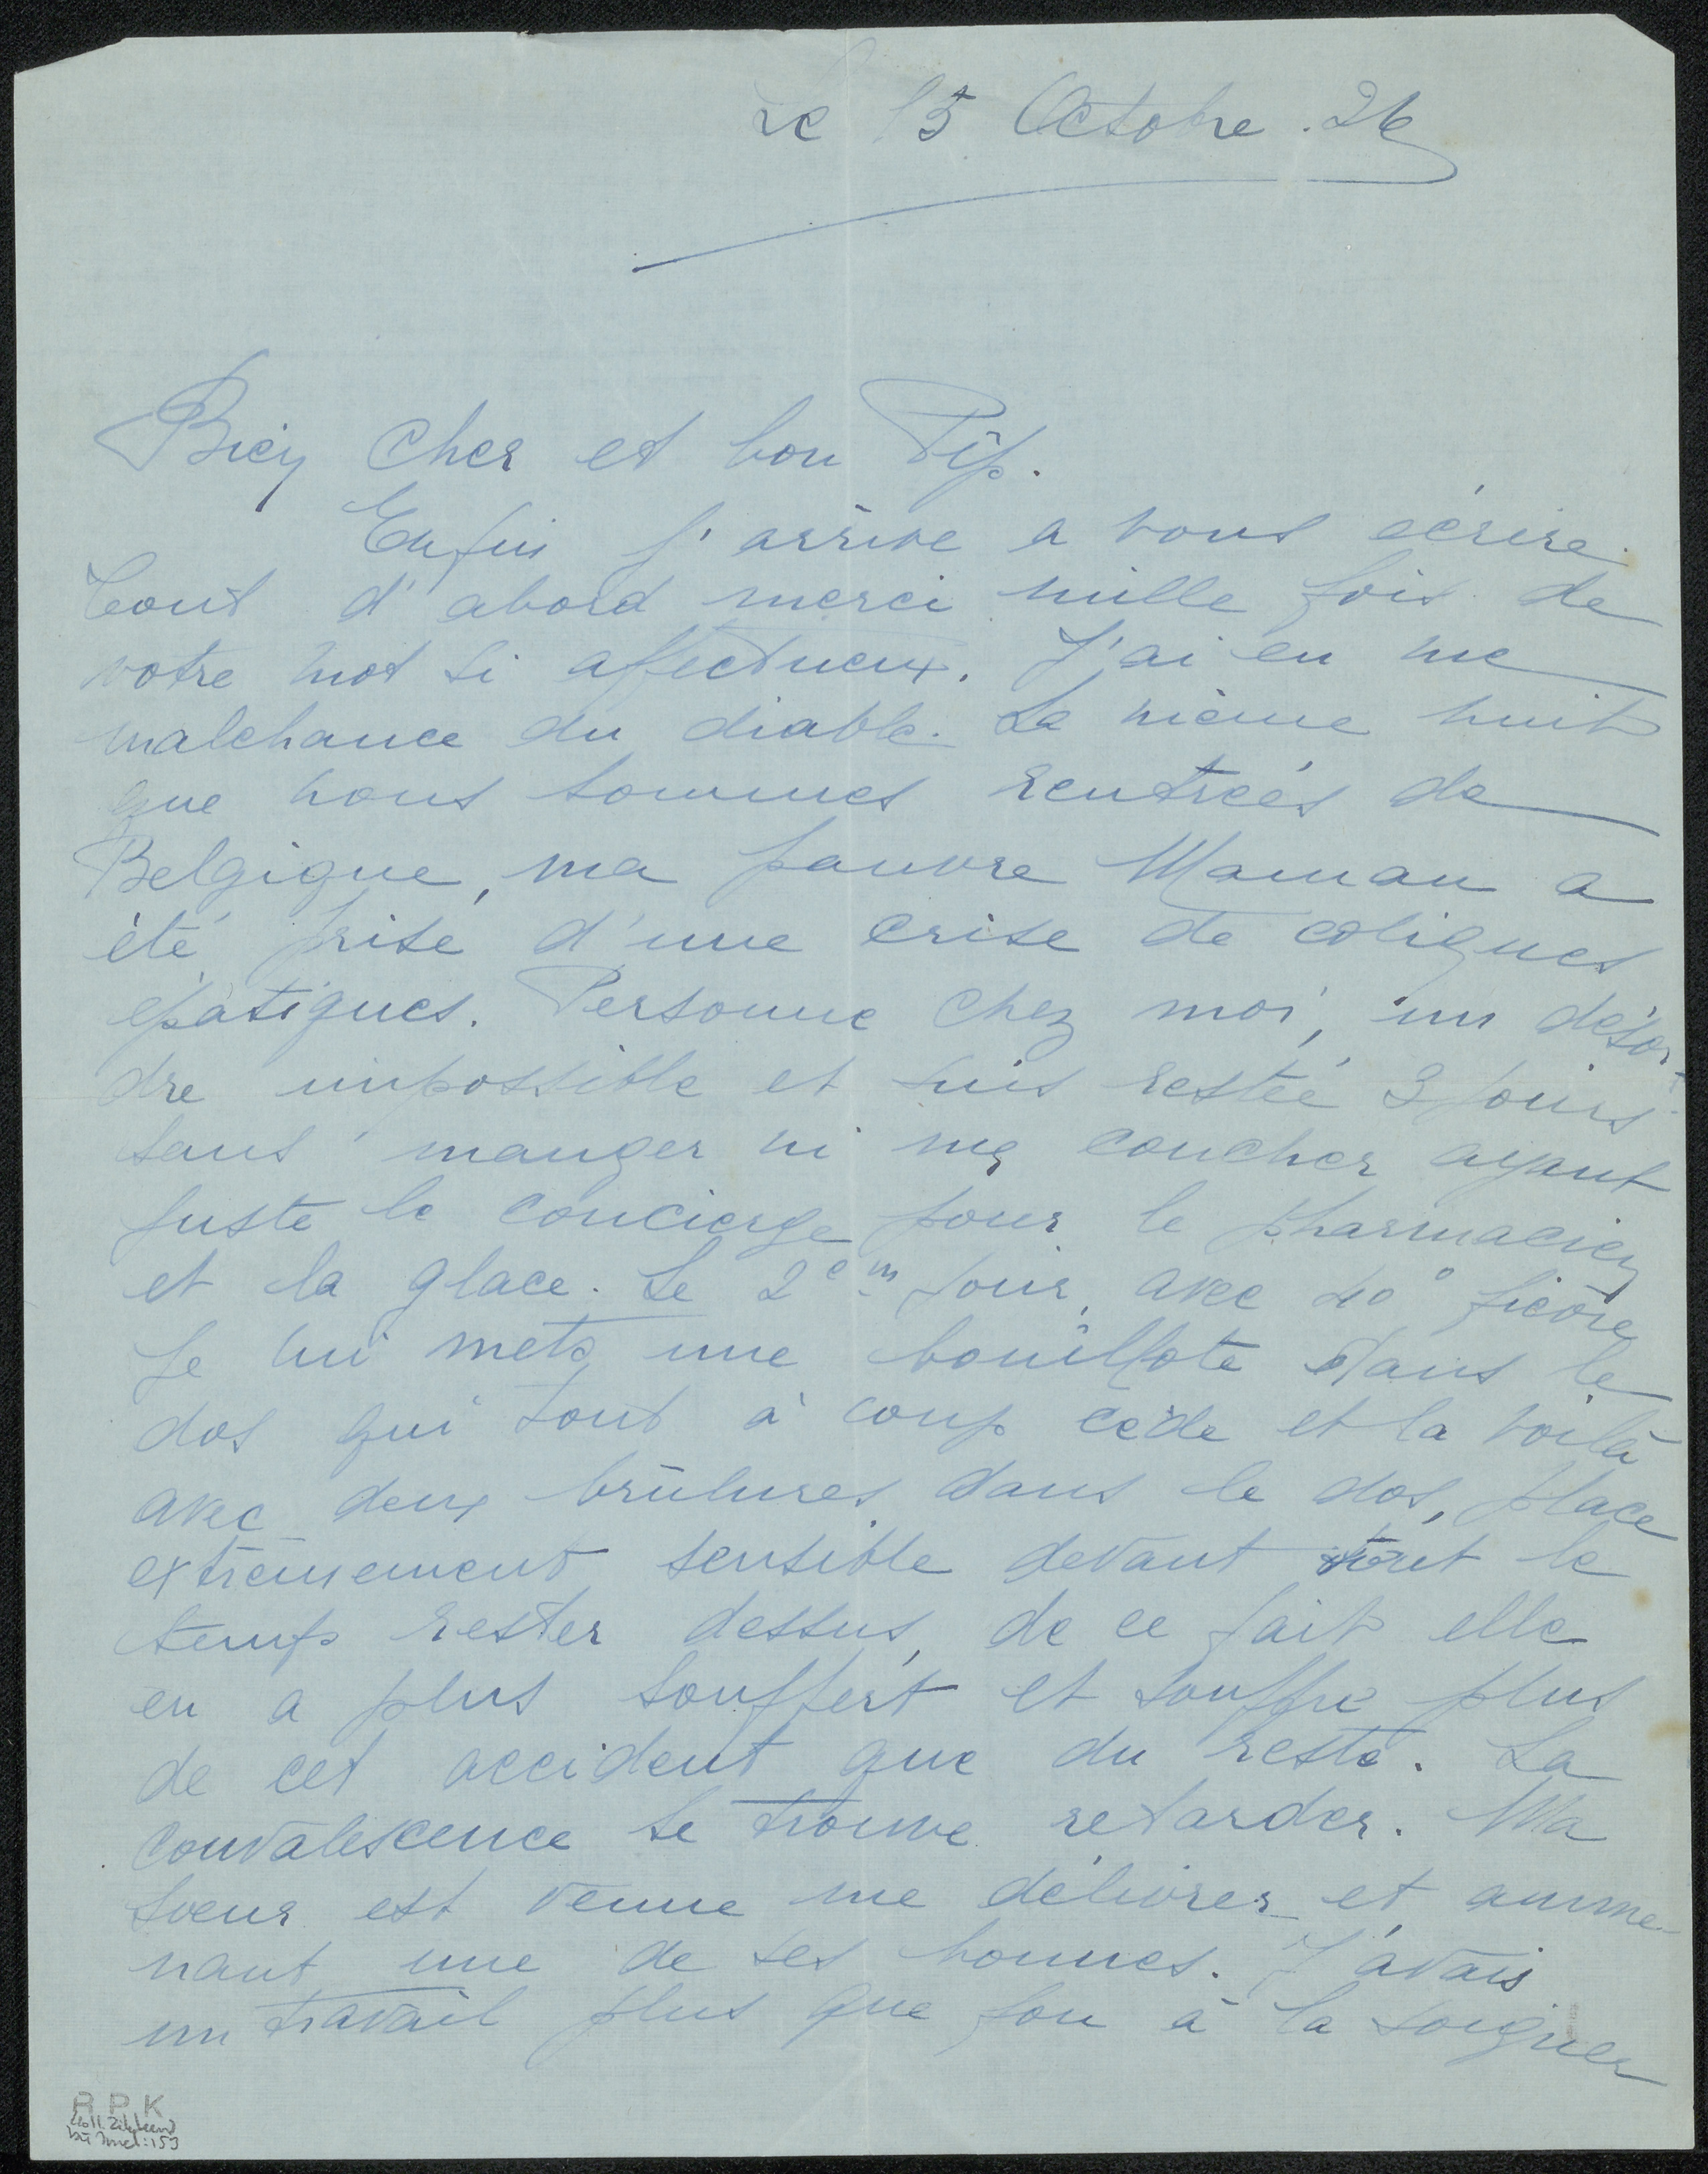 Le 15 Octobre . 26
Bien Cher et bon Pip.
Enfin j'arrive a vous écrire.
Tout d'abord merci mille fois de
votre mot si affectueux. J'ai eu une
malchance du diable. La même nuit
que nous sommes rentrées de
Belgique, ma pauvre Maman a
été prise d'une crise de coliques
épatiques. Personne chez moi, un désor-
dre impossible et suis restée 3 jours
sans manger ni me coucher ayant
juste le concierge pour le pharmacien
et la glace. Le 2em jour, avec 40° fièvre
je lui mets une bouillote dans le
dos qui tout à coup cède et la voilà
avec deux brûlures dans le dos, place
extrêmement sensible devant tout le
temps rester dessus, de ce fait elle
en a plus souffert et souffre plus
de cet accident que du reste. La
convalescence se trouve retarder. Ma
soeur est venue me délivrer et amme-
nant une de ses bonnes. J'avais
un travail plus que fou à la soigner
R P K